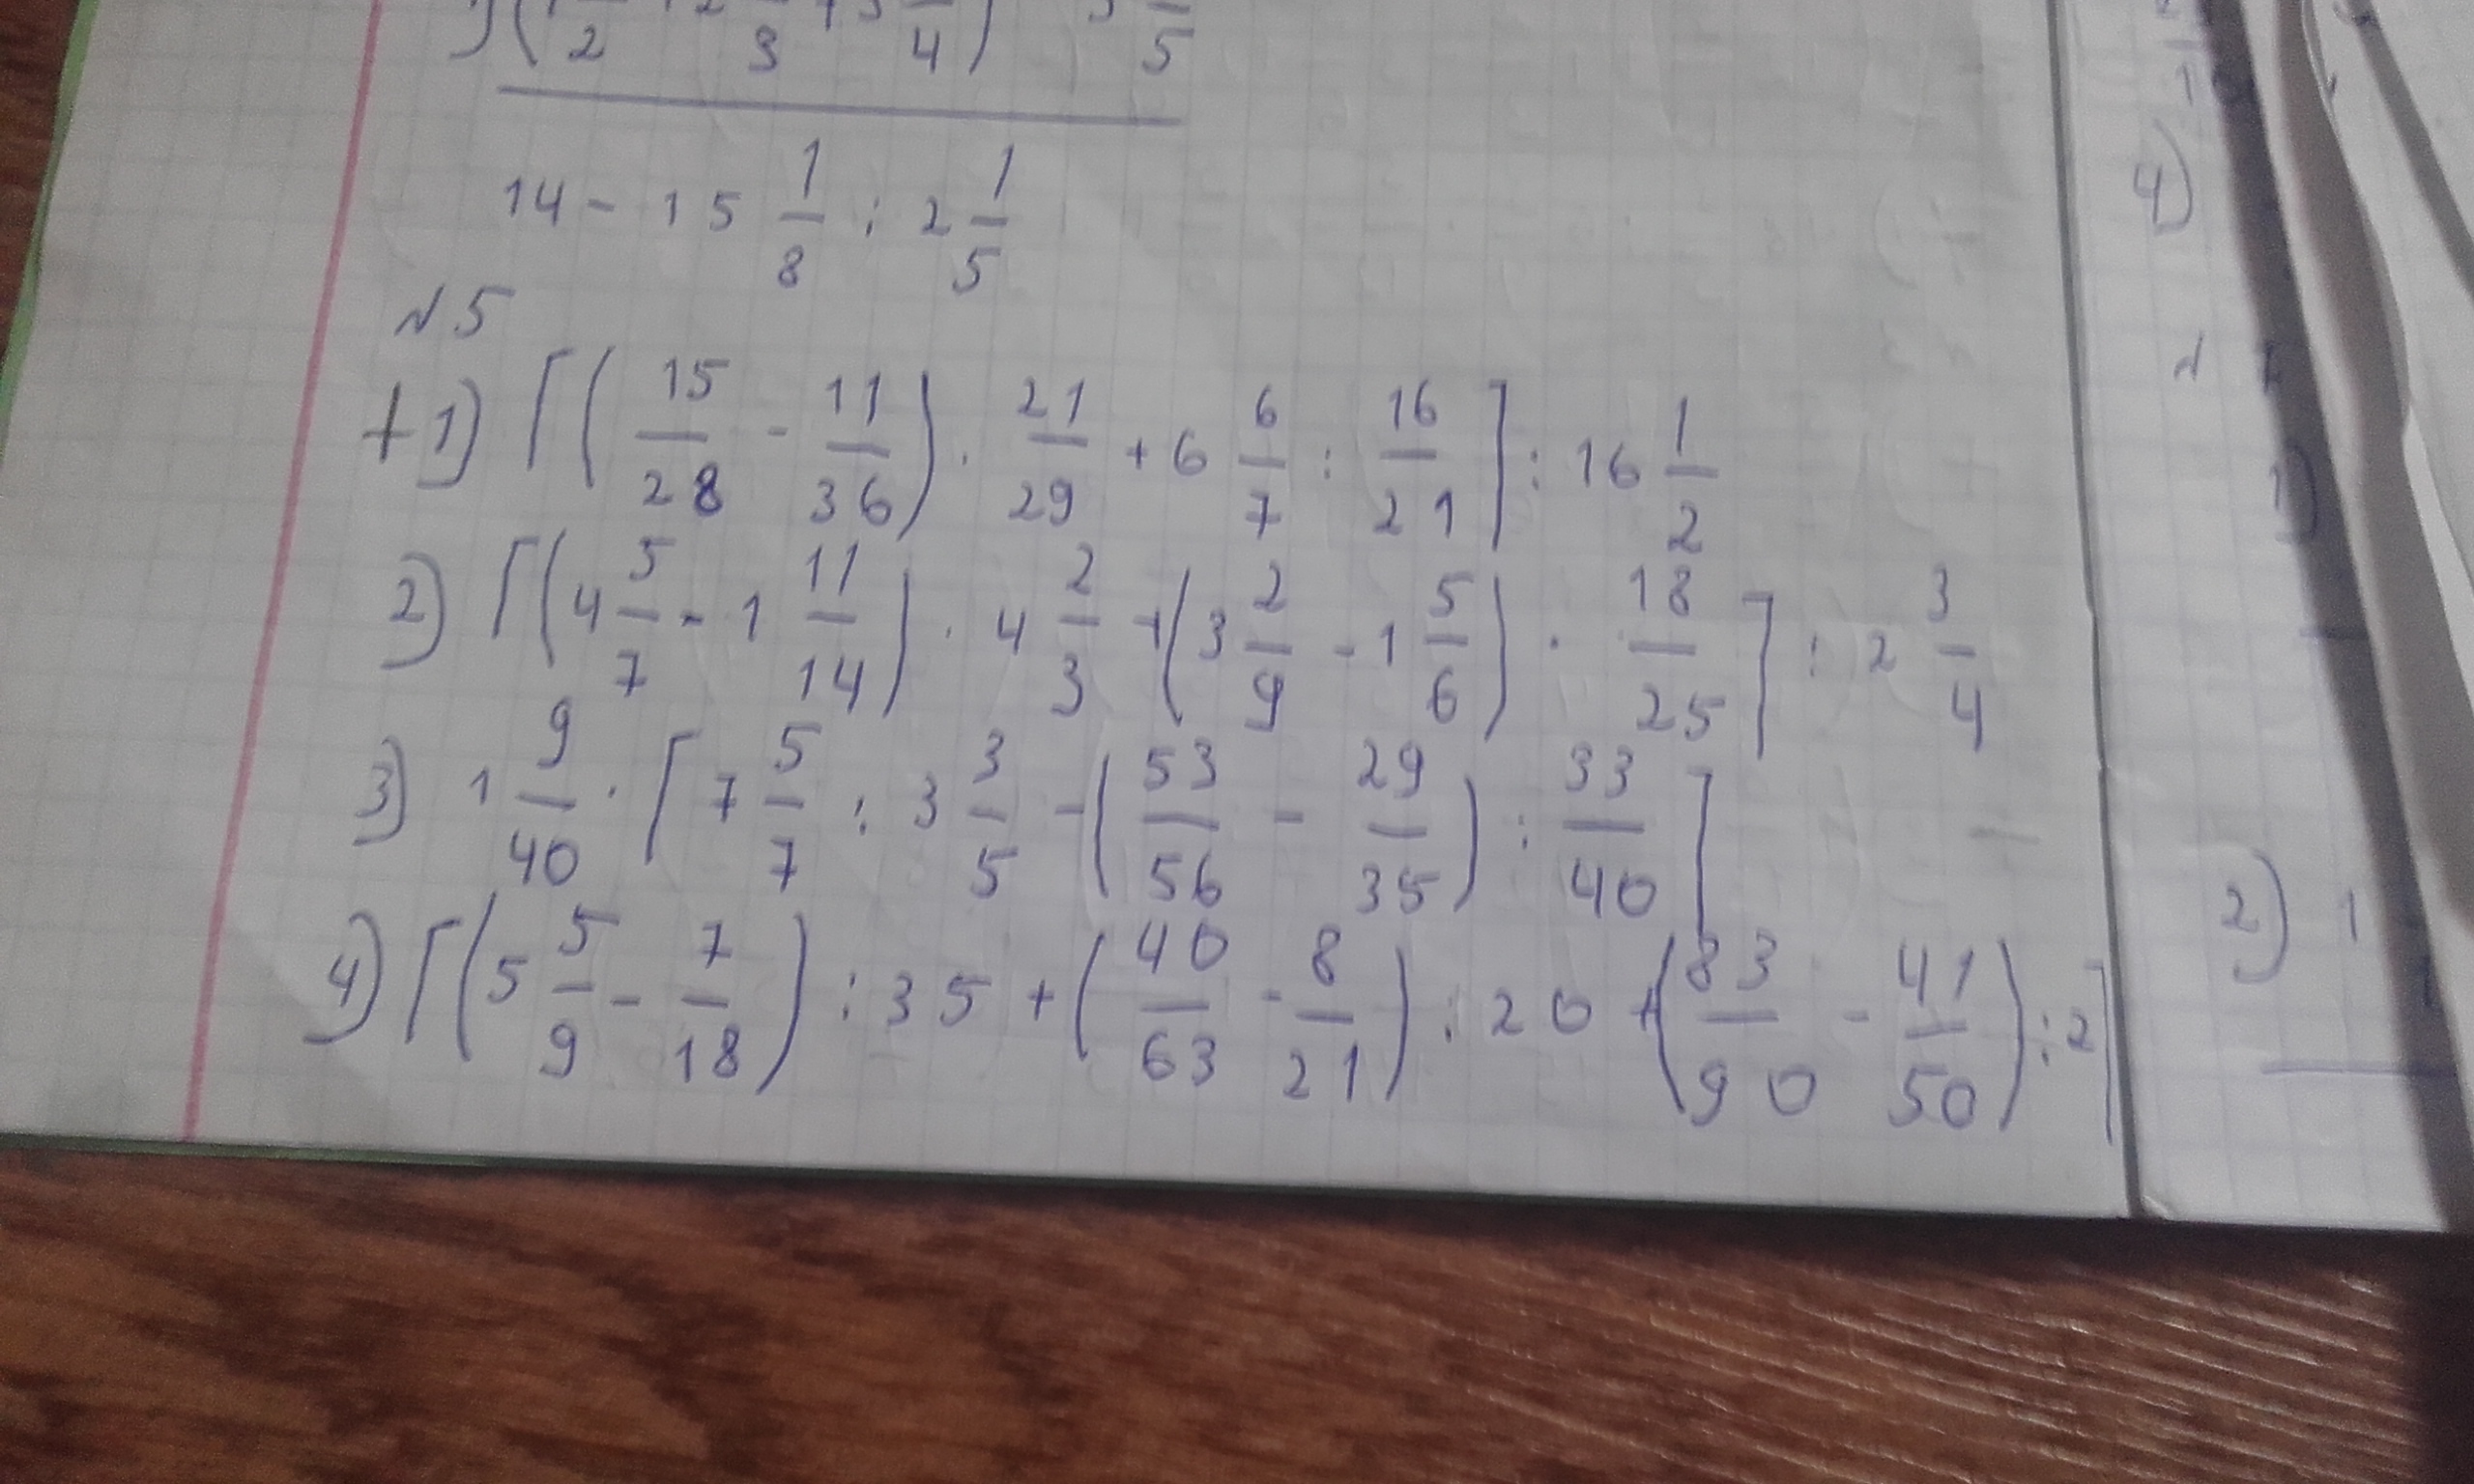 14 - 15 1/8 : 2 1/5
N5
+1) [(15/28 - 11/36) · 21/29 + 6 6/7 : 16/21] : 16 1/2
2) [(4 5/7 - 1 11/14) · 4 2/3 + (3 2/9 - 1 5/6) · 18/25] : 2 3/4
3) 1 9/40 · [7 5/7 : 3 3/5 - (53/56 - 29/35) : 33/40]
4) [(5 5/9 - 7/18) : 35 + (40/63 - 8/21) : 20 + (83/90 - 41/50) : 2]
4)
2) 1